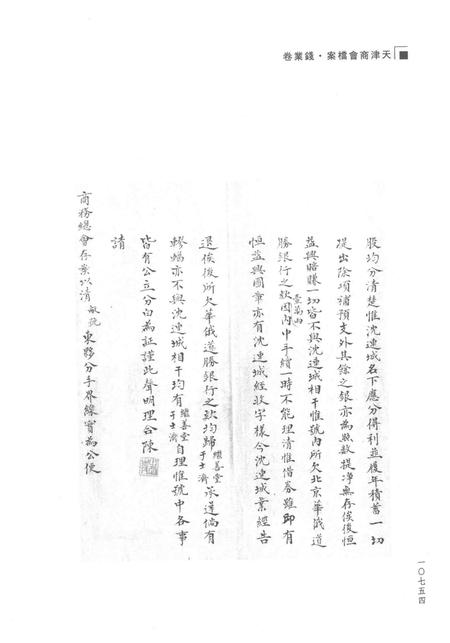 天津商會檔案·錢業卷
股均分清楚惟沈連城名下應分得利並歷年積蓄一切
提出除項補預支外其餘之銀亦為照數提淨無存俟後恒
益興賠賺一切皆不與沈連城相干惟號內所欠北京華俄道
勝銀行之款壹萬兩因內中手續一時不能理清惟借券雖印有
恒益興圖章亦有沈連城經收字樣今沈連城業經告
退俟後所欠華俄道勝銀行之款均歸繼善堂于士濤承還倘有
轇轕亦不與沈連城相干均有繼善堂于士濤自理惟號中各事
皆有公立分白為証謹此聲明理合陳
請
商務總會存案以清敝號東夥分手界線實為公便
一〇七五四